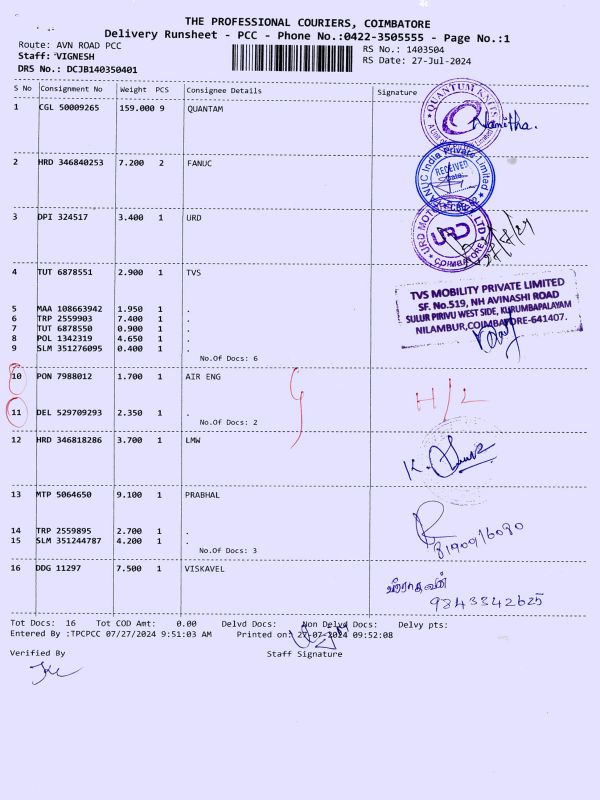 THE PROFESSIONAL COURIERS, COIMBATORE
Delivery Runsheet - PCC - Phone No.:0422-3505555 - Page No.:1
Route: AVN ROAD PCC
RS No.: 1403504
Staff: VIGNESH
RS Date: 27-Jul-2024
DRS No.: DCJB140350401
S No Consignment No Weight PCS Consignee Details Signature
1 CGL 50009265 159.000 9 QUANTAM
Namitha.
2 HRD 346840253 7.200 2 FANUC
RECEIVED
3 DPI 324517 3.400 1 URD
URD
COIMBATORE
4 TUT 6878551 2.900 1 TVS
TVS MOBILITY PRIVATE LIMITED
SF. No.519, NH AVINASHI ROAD
SULUR PIRIVU WEST SIDE, KURUMBAPALAYAM
NILAMBUR,COIMBATORE-641407.
5 MAA 108663942 1.950 1 .
6 TRP 2559903 7.400 1 .
7 TUT 6878550 0.900 1 .
8 POL 1342319 4.650 1 .
9 SLM 351276095 0.400 1 .
No.Of Docs: 6
10 PON 7988012 1.700 1 AIR ENG
H/L
11 DEL 529709293 2.350 1 .
No.Of Docs: 2
12 HRD 346818286 3.700 1 LMW
13 MTP 5064650 9.100 1 PRABHAL
8190016080
14 TRP 2559895 2.700 1 .
15 SLM 351244787 4.200 1 .
No.Of Docs: 3
16 DDG 11297 7.500 1 VISKAVEL
9843342625
Tot Docs: 16 Tot COD Amt: 0.00 Delvd Docs: Non Delvd Docs: Delvy pts:
Entered By :TPCPCC 07/27/2024 9:51:03 AM Printed on: 27-07-2024 09:52:08
Verified By Staff Signature